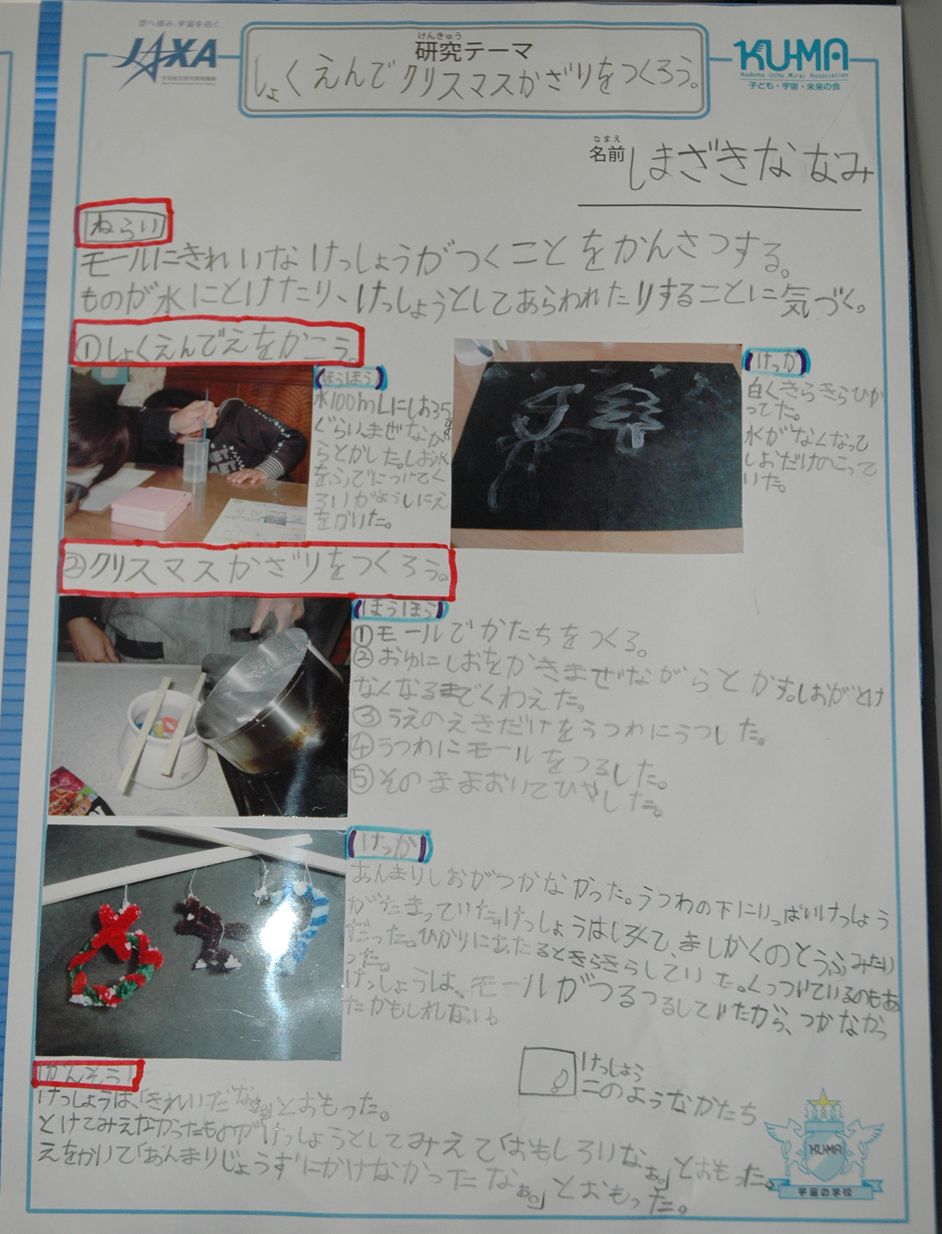 空へ挑み、宇宙を拓く
JAXA
けんきゅう
研究テーマ
しょくえんでクリスマスかざりをつくろう。
KU-MA
Kodomo Uchu Mirai Association
子ども・宇宙・未来の会
なまえ
名前 しまざきななみ
ねらい
モールにきれいなけっしょうがつくことをかんさつする。
ものが水にとけたり、けっしょうとしてあらわれたりすることに気づく。
①しょくえんでえをかこう。
ほうほう
水100mLにしお35g
ぐらいまぜなが
らとかした。しお水
をふでにつけてく
ろいがようしにえ
をかいた。
けっか
白くきらきらひか
ってた。
水がなくなって
しおだけのこって
いた。
②クリスマスかざりをつくろう。
ほうほう
①モールでかたちをつくる。
②おゆにしおをかきまぜながらとかす。しおがとけ
なくなるまでくわえた。
③うえのえきだけをうつわにうつした。
④うつわにモールをつるした。
⑤そのままおいてひやした。
けっか
あんまりしおがつかなかった。うつわの下にいっぱいけっしょう
がたまっていた。けっしょうはしろくて、ましかくのとうふみたい
だった。ひかりにあたるときらきらしていた。くっついているのもあ
った。
けっしょうは、モールがつるつるしていたから、つかなかっ
たかもしれない。
けっしょう
このようなかたち
かんそう
けっしょうは、「きれいだなぁ。」とおもった。
とけてみえなかったものがけっしょうとしてみえて「おもしろいなぁ。」とおもった。
えをかいて「あんまりじょうずにかけなかったなぁ。」とおもった。
KU-MA
宇宙の学校